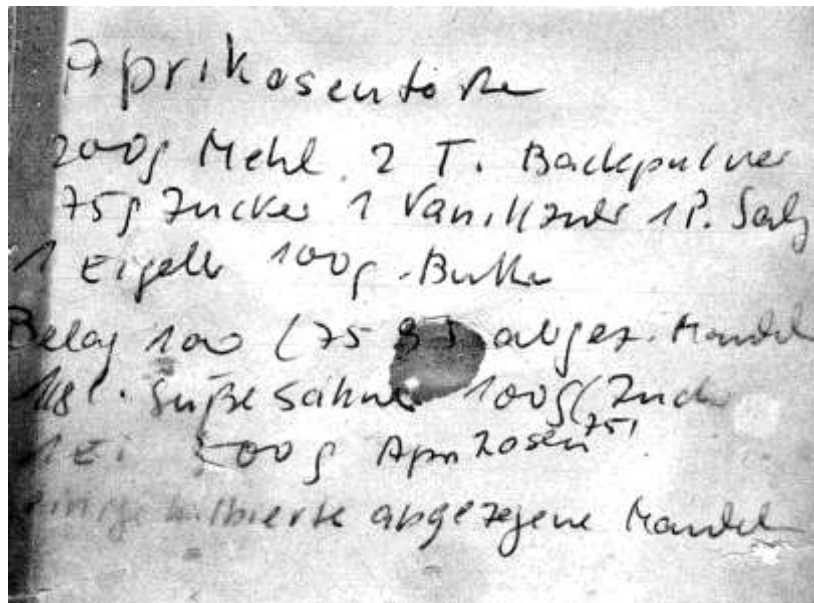 Aprikosentorte
200g Mehl 2 T. Backpulver
75g Zucker 1 Vanillzucker 1 P. Salz
1 Eigelb 100g Butter
Belag 100 (75 g) abgez. Mandel
1/8 l. Süße Sahne 100g (Zuck
1 Ei 500 g Aprikosen 75)
einige halbierte abgezogene Mandel